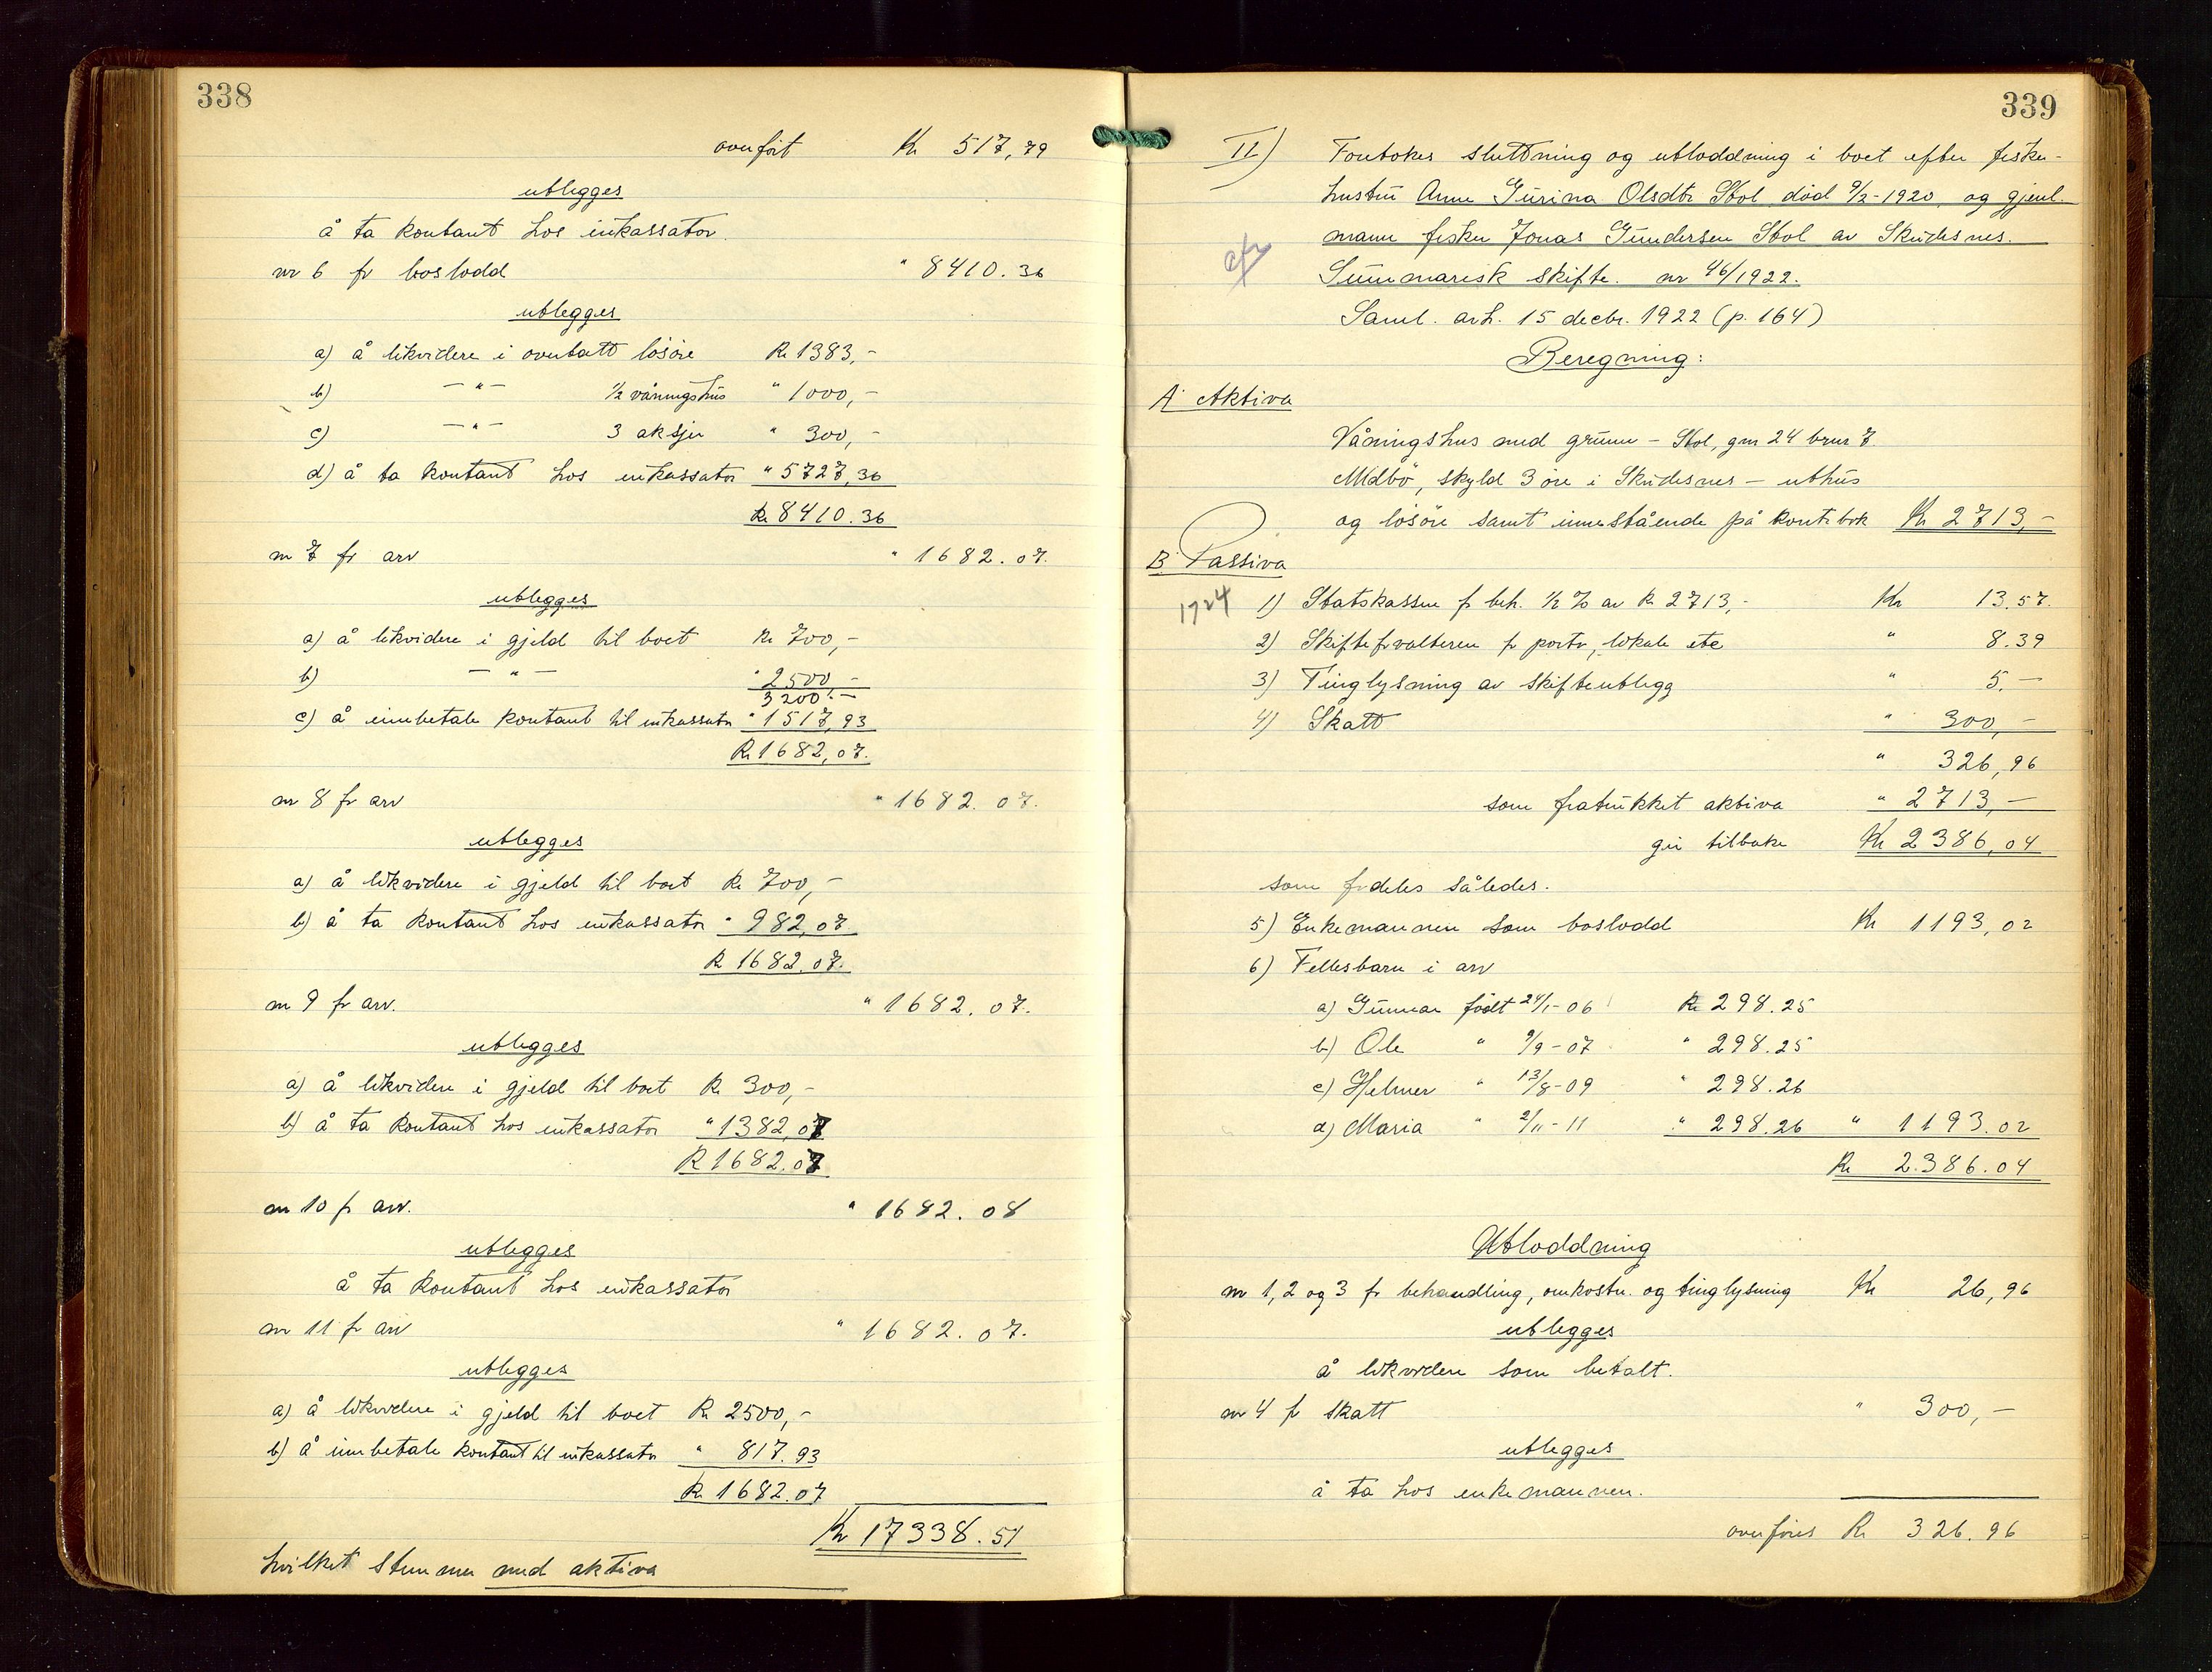 338
overført Kr 517,79
utlegges
å ta kontant hos inkassator
nr 6 fr boslodd " 8410.36
utlegges
a) å likvidere i overtatt løsøre Kr 1383,-
b) -"- 1/2 våningshus " 1000,-
c) -"- 3 aksjer " 300,-
d) å ta kontant hos inkassator " 5727,36
Kr 8410.36
nr 7 fr arv " 1682.07.
utlegges
a) å likvidere i gjeld til boet Kr 700,-
b) -"- " 2500 -
3200.-
c) å innbetale kontant til inkassator " 1517,93
Kr 1682,07.
nr 8 fr arv " 1682.07.
utlegges
a) å likvidere i gjeld til boet Kr 700,-
b) å ta kontant hos inkassator " 982,07
Kr 1682.07.
nr 9 fr arv. " 1682.07.
utlegges
a) å likvidere i gjeld til boet Kr 300,-
b) å ta kontant hos inkassator " 1382,07
Kr 1682.07
nr 10 fr arv. " 1682.08
utlegges
å ta kontant hos inkassator
nr 11 fr arv " 1682.07.
utlegges
a) å likvidere i gjeld til boet Kr 2500,-
b) å innbetale kontant til inkassator " 817.93
Kr 1682.07
Kr 17338.51
hvilket stemmer med aktiva
339
II) Foretokes sluttning og utloddning i boet efter fisker-
hustru Anne Gurina Olsdtr Stol død 9/2-1920, og gjenl.
mann fisker Jonas Gundersen Stol av Skudesnes.
Summarisk skifte. nr 46/1922.
Saml. avh. 15 decbr. 1922 (p. 164)
Beregning:
A. Aktiva
Våningshus med grunn - Stol, gnr 24 brnr 7
Midbø, skyld 3 øre i Skudesnes - uthus
og løsøre samt innestående på kontrabok Kr 2713,-
B. Passiva
1724 1) Statskassen fr beh. 1/2 % av Kr 2713,- Kr 13.57.
2) Skiftefrvalteren fr porto, lokale etc " 8.39
3) Tinglysning av skifteutlegg " 5.-
4) Skatt " 300,-
" 326,96
som fratrukket aktiva " 2713,-
gir tilbake Kr 2386,04
som frdeles således.
5) Enkemannen som boslodd Kr 1193,02
6) Fellesbarn i arv
a) Gunnar født 24/1-06 Kr 298.25
b) Ole " 9/9-07 " 298.25
c) Helmer " 13/8-09 " 298.26
d) Maria " 2/11-11 " 298.26 " 1193.02
Kr 2.386.04
Utloddning
nr 1, 2 og 3 fr behandling, omkostn. og tinglysning Kr 26,96
utlegges
å likvidere som betalt.
nr 4 fr skatt " 300,-
utlegges
å ta hos enkemannen.
overføres Kr 326.96